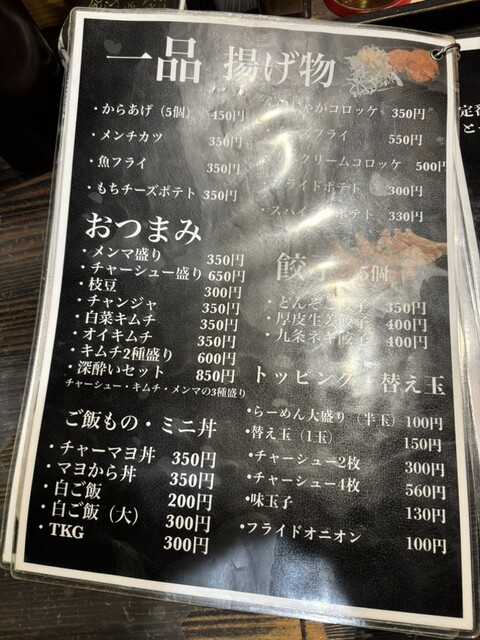 一品 揚げ物
・からあげ（5個） 450円
・メンチカツ 350円
・魚フライ 350円
・もちチーズポテト 350円
じゃがコロッケ 350円
ズフライ 550円
クリームコロッケ 500円
フライドポテト 300円
・スパイ ポテト 330円
おつまみ
・メンマ盛り 350円
・チャーシュー盛り 650円
・枝豆 300円
・チャンジャ 350円
・白菜キムチ 350円
・オイキムチ 350円
・キムチ2種盛り 600円
・深酔いセット 850円
チャーシュー・キムチ・メンマの3種盛り
餃子 5個
・とんそく餃子 350円
・厚皮生姜餃子 400円
・九条ネギ餃子 400円
ご飯もの・ミニ丼
・チャーマヨ丼 350円
・マヨから丼 350円
・白ご飯 200円
・白ご飯（大） 300円
・TKG 300円
トッピング 替え玉
・らーめん大盛り（半玉） 100円
・替え玉（1玉） 150円
・チャーシュー2枚 300円
・チャーシュー4枚 560円
・味玉子 130円
・フライドオニオン 100円
定番
と